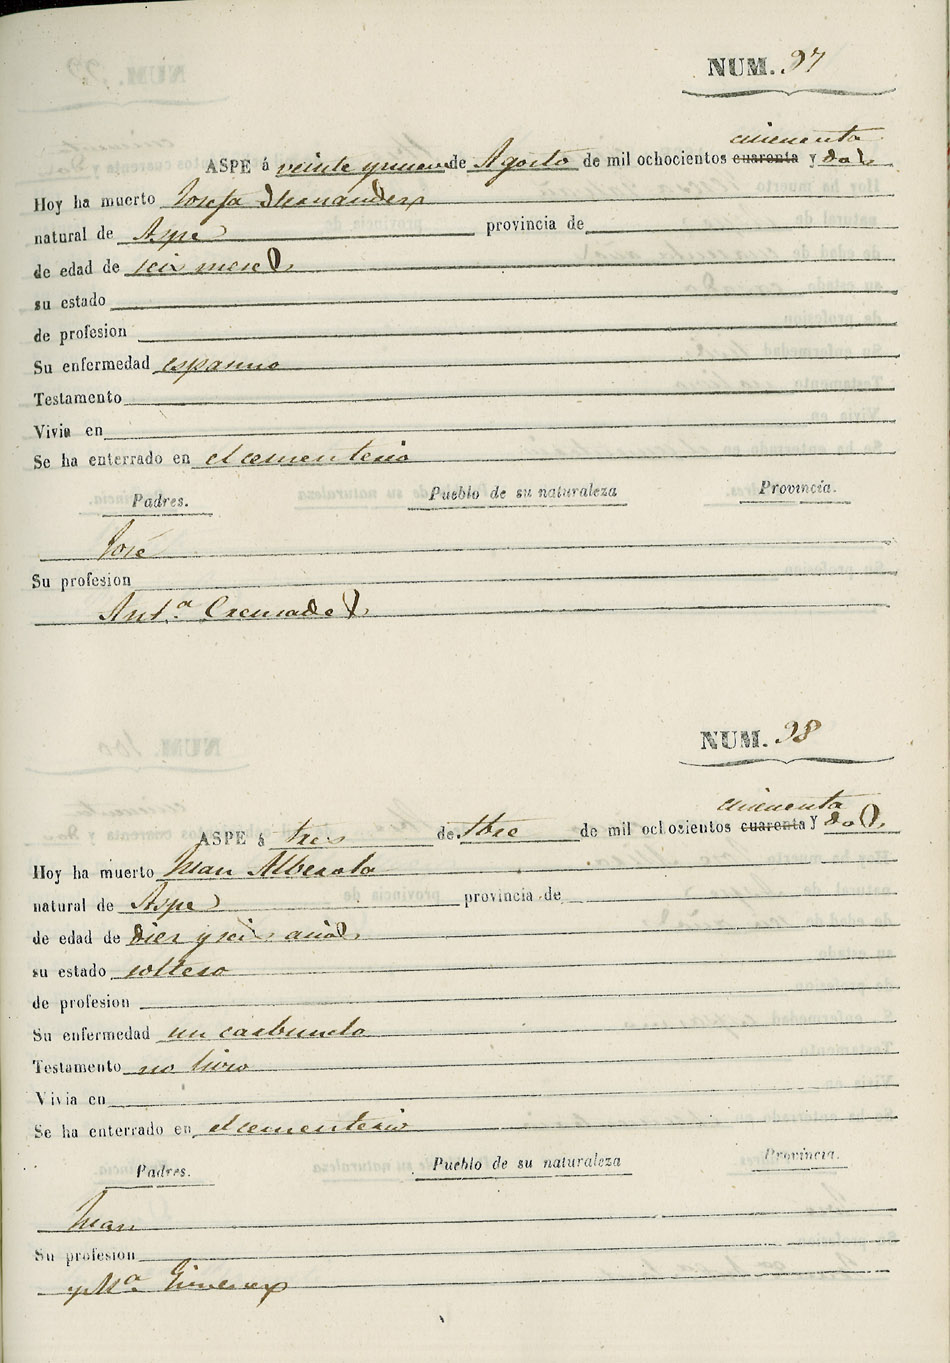 NUM. 97
cincuenta
ASPE á veinte y nueve de Agosto de mil ochocientos cuarenta y dos
Hoy ha muerto Josefa Hernandez
natural de Aspe provincia de
de edad de seis meses
su estado
de profesion
Su enfermedad espasmo
Testamento
Vivia en
Se ha enterrado en el cementerio
Padres. Pueblo de su naturaleza Provincia.
José
Su profesion
Ant.ª Cremades
NUM. 98
cincuenta
ASPE á tres de 7bre de mil ochocientos cuarenta y dos
Hoy ha muerto Juan Alberola
natural de Aspe provincia de
de edad de diez y seis años
su estado soltero
de profesion
Su enfermedad un carbunclo
Testamento no hizo
Vivia en
Se ha enterrado en el cementerio
Padres. Pueblo de su naturaleza Provincia.
Juan
Su profesion
y Mª Gimenez